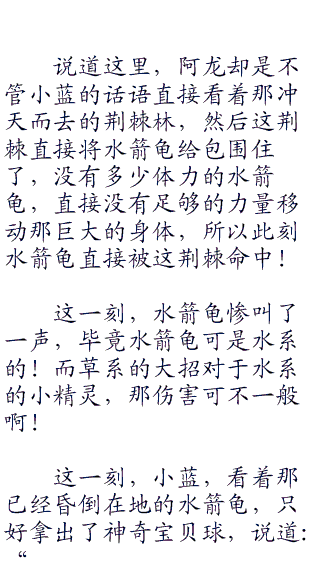 说道这里，阿龙却是不
管小蓝的话语直接看着那冲
天而去的荆棘林，然后这荆
棘直接将水箭龟给包围住
了，没有多少体力的水箭
龟，直接没有足够的力量移
动那巨大的身体，所以此刻
水箭龟直接被这荆棘命中！
这一刻，水箭龟惨叫了
一声，毕竟水箭龟可是水系
的！而草系的大招对于水系
的小精灵，那伤害可不一般
啊！
这一刻，小蓝，看着那
已经昏倒在地的水箭龟，只
好拿出了神奇宝贝球，说道：
“